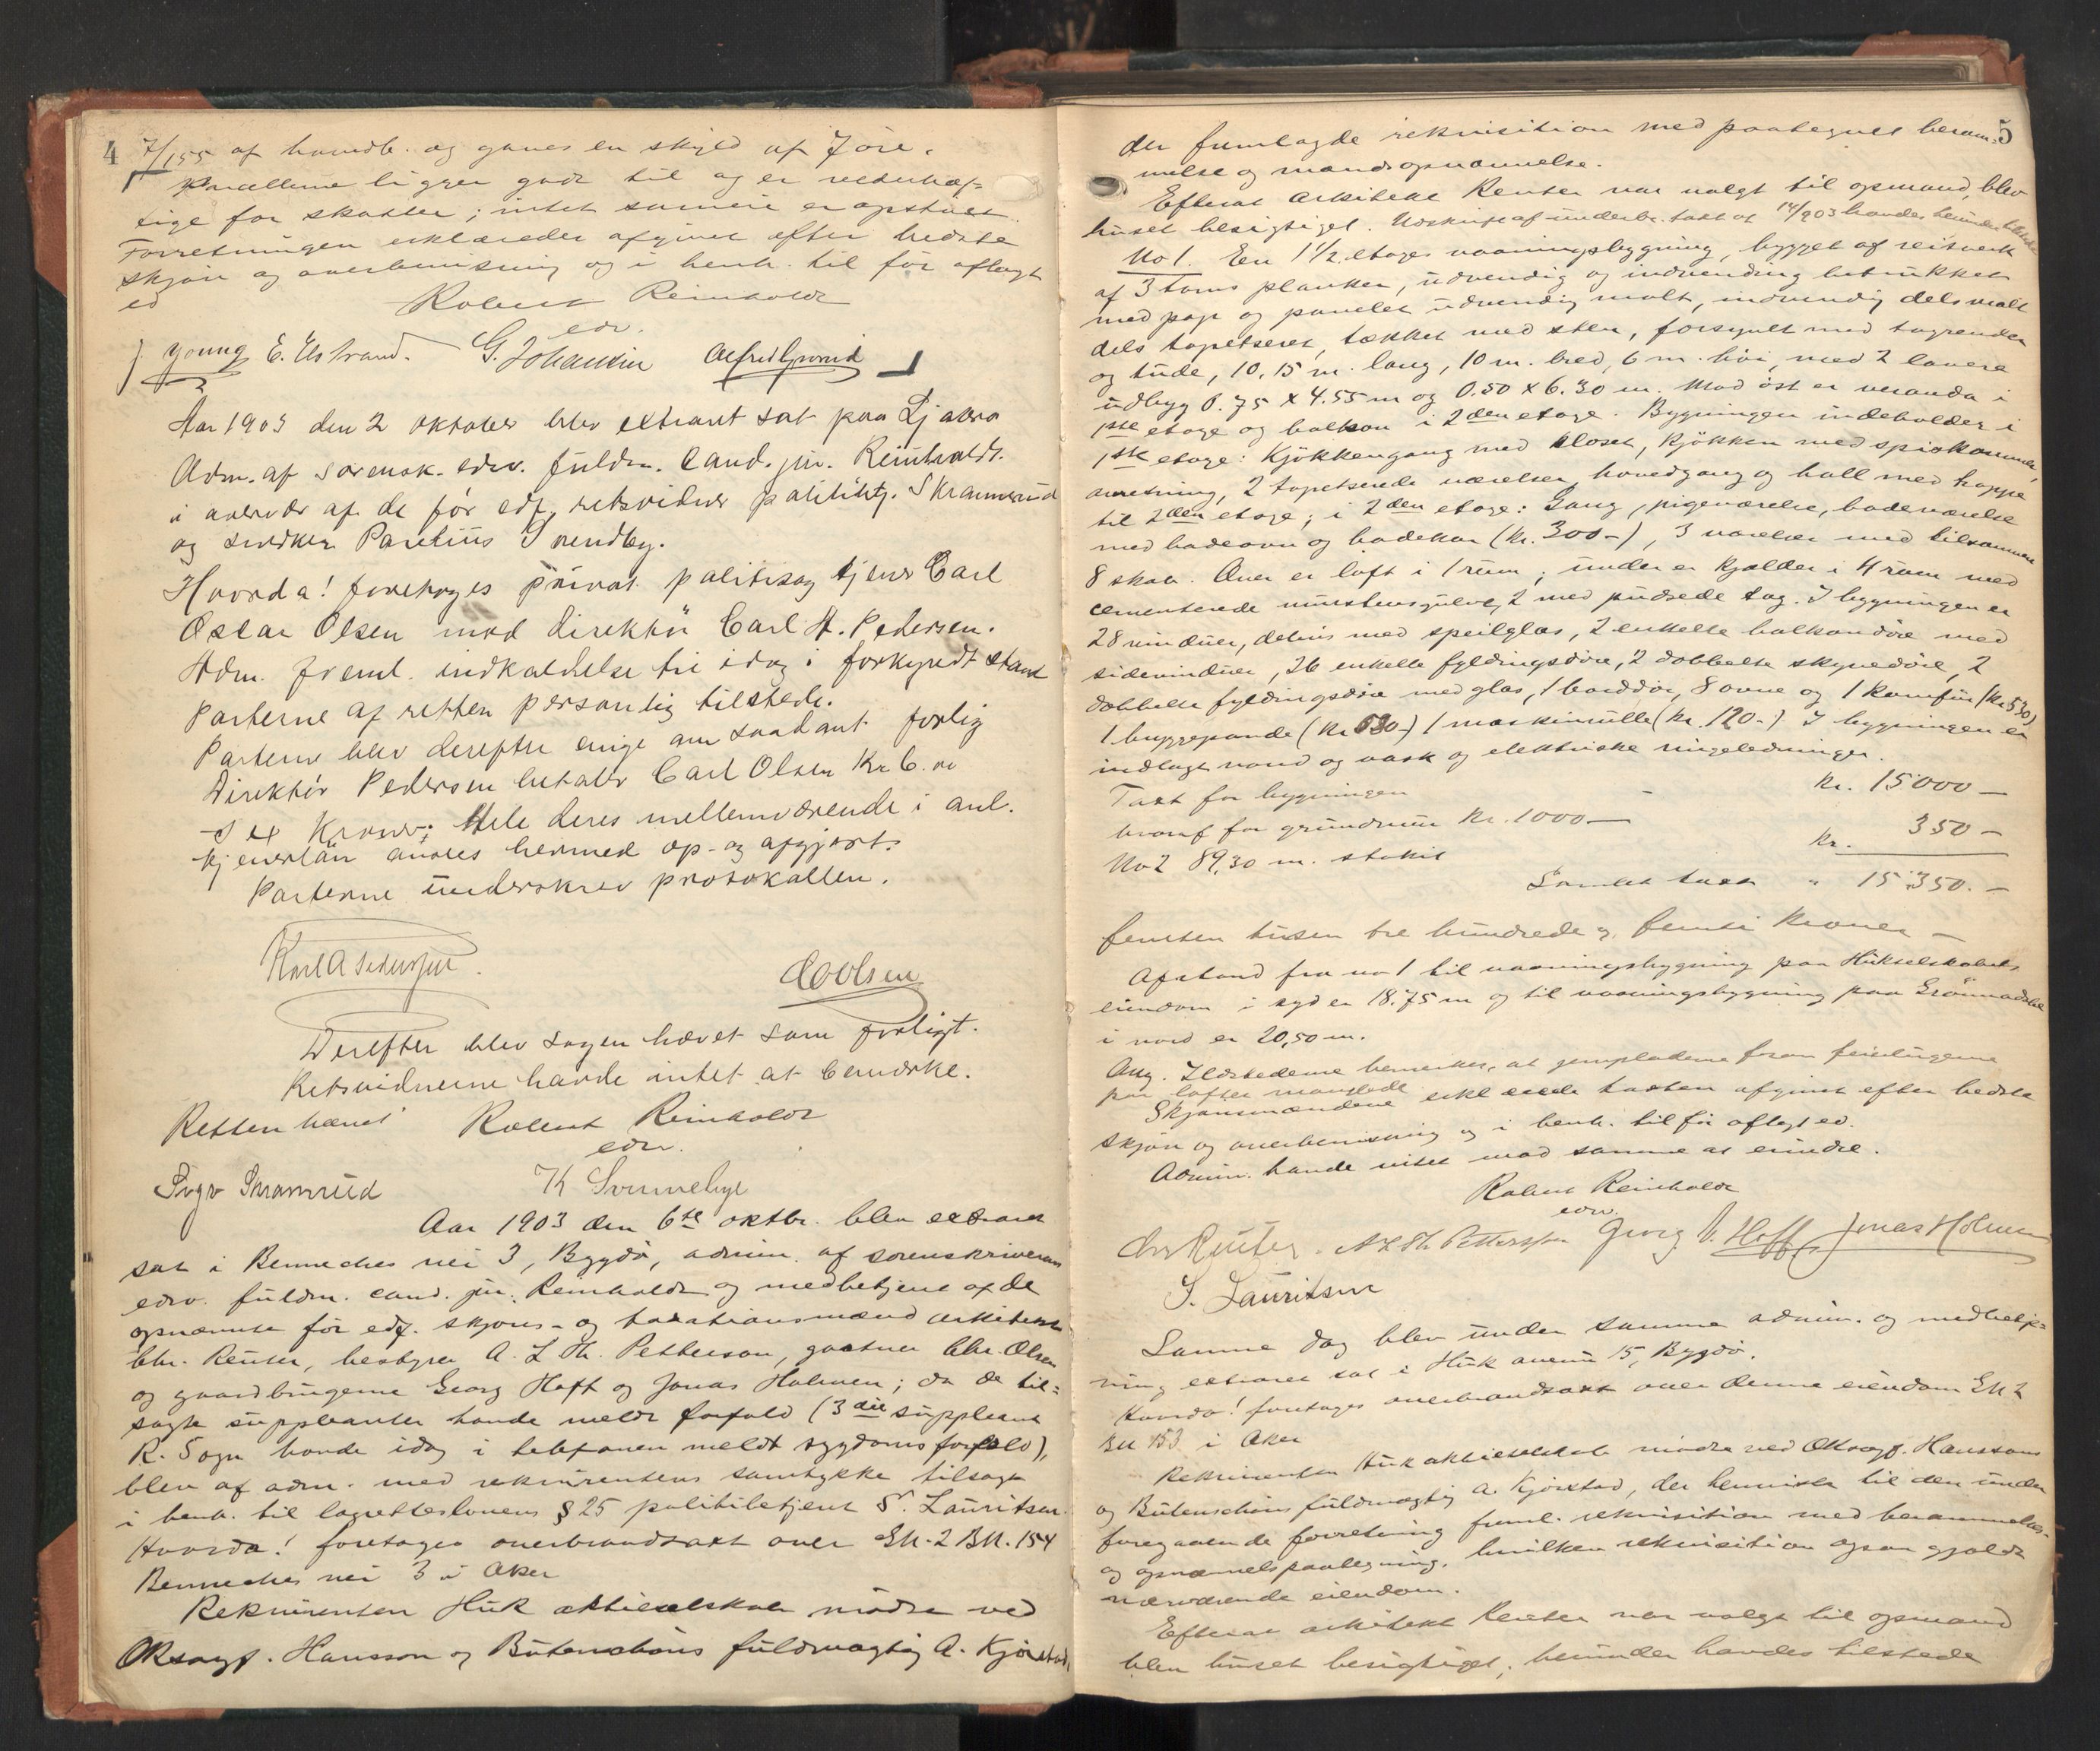 4
7/155 af hovedb. og gives en skyld af 7 øre.
Parcellerne ligger godt til og er vederhæf-
tige for skatter; intet sameie er opstaaet.
Forretningen erklæredes afgivet efter bedste
skjøn og overbevisning og i henh. til før aflagt
ed
Robert Reinholdt
edv.
J. Young E. Elstrand. G. Johansen
Aar 1903 den 2 oktober blev extraret sat paa Ljabro
Adm. af sorensk. edsv. fuldm. Cand. jur. Reinholdt.
i overvær af de før edf. retsvidner politibtj. Skramrud
og snedker Paulius Svendby.
Hvorda! foretoges privat politisag tjener Carl
Oscar Olsen mod direktør Carl A. Pedersen.
Adm. freml. indkaldelse til idag i forkyndt stand
Parterne af retten personlig tilstede.
Parterne blev derefter enige om saadant forlig
Direktør Pedersen betaler Carl Olsen Kr 6.00
Sex Kroner. Hele deres mellemværende i anl.
tjenerløn ansees hermed op- og afgjort.
Parterne underskrev protokollen.
Karl A Pedersen. COlsen
Derefter blev sagen hævet som forligt.
Retsvidnerne havde intet at bemærke.
Retten hævet Robert Reinholdt
edv.
Ingv Skramrud K Svennebye
Aar 1903 den 6te oktbr. blev extraret
sat i Benneches vei 3, Bygdø, admin. af sorenskriverens
edsv. fuldm. cand. jur. Reinholdt og medbetjent af de
opnævnte før edf. skjøns- og taxationsmænd arkitekt
Chr. Reuter, bestyrer A. L. Th. Petterson, gartner Chr. Olsen
og gaardbrugerne Georg Hoff og Jonas Holmen; da de til-
sagte suppleanter havde meldt forfald (3die suppleant
R. Sogn havde idag i telefonen meldt sygdomsforfald),
blev af adm. med rekvirentens samtykke tilsagt
i henh. til lagrettelovens § 25 politibetjent S. Lauritsen.
Hvorda! foretages overbrandtaxt over GN. 2 BN. 154
Benneches vei 3 i Aker
Rekvirenten Huk aktieselskab mødte ved
ORsagf. Hansson og Butenschøns fuldmægtig A. Kjørstad,
5
der fremlagde rekvisition med paategnet beram-
melse og mandsopnævnelse.
Efterat arkitekt Reuter var valgt til opmand, blev
huset besigtiget. Udskrift af underbr. taxt af 14/9 03 havdes herunder tilstede
No 1. En 1 1/2 etages vaaningsbygning, bygget af reisverk
af 3 toms planker, udvendig og indvendig betrukket
med pap og panelet udvendig malt, indvendig dels malt
dels tapetseret, tækket med sten, forsynet med tagrender
og tude, 10,15 m. lang, 10 m. bred, 6 m. høi, med 2 lavere
udbyg 0.75 x 4.55 m og 0.50 x 6.30 m. Mod øst er veranda i
1ste etage og balkon i 2den etage. Bygningen indeholder i
1ste etage: Kjøkkengang med kloset, Kjøkken med spiskammer,
anretning, 2 tapetserede værelser, hovedgang og hall med trappe
til 2den etage; i 2den etage: Gang, pigeværelse, badeværelse
med badeovn og badekar (kr. 300-), 3 værelser med tilsammen
8 skab. Over er loft i 1 rum; under er Kjælder i 4 rum med
cementerede murstensgulve, 2 med pudsede tag. I bygningen er
28 vinduer, delvis med speilglas, 2 enkelte balkondøre med
sidevinduer, 26 enkelte fyldingsdøre, 2 dobbelte skyvedøre, 2
dobbelte fyldingsdøre med glas, 1 borddør, 8 ovne og 1 komfur (kr 530)
1 bryggepande (kr 50-) 1 maskinrulle (kr. 120-) I bygningen er
indlagt vand og vask og elektriske ringeledninger.
Taxt for bygningen kr. 15000 –
hvoraf for grundmur kr. 1000 –
No 2 89,30 m. stakit kr. 350 –
Samlet taxt " 15350. –
femten tusen tre hundrede og femti kroner –
Afstand fra no 1 til vaaningsbygning paa Hukselskabets
eiendom i syd er 18.75 m og til vaaningsbygning paa
i nord er 20,50 m.
Ang. Ildstederne bemerkes, at jernpladerne foran feielugerne
paa loftet manglede
Skjønsmændene erklærede taxten afgivet efter bedste
skjøn og overbevisning og i henh. til før aflagt ed.
Admin. havde intet mod samme at erindre.
Robert Reinholdt
edv.
Chr Reuter. A L Th. Petterson Georg Hoff Jonas Holmen
S. Lauritsen
Samme dag blev under samme admin. og medbetje-
ning extraret sat i Huk avenue 15, Bygdø.
Hvorda! foretages overbrandtaxt over denne eiendom GN 2
BN 153 i Aker
Rekvirenten Huk aktieselskab mødte ved ORsagf. Hanssons
og Butenschøns fuldmægtig A. Kjørstad, der henviste til den under
foregaaende forretning freml. rekvisition med berammelses-
og opnævnelsespaategning, hvilken rekvisition ogsaa gjaldt
nærværende eiendom.
Efterat arkitekt Reuter var valgt til opmand
blev huset besigtiget; herunder havdes tilstede